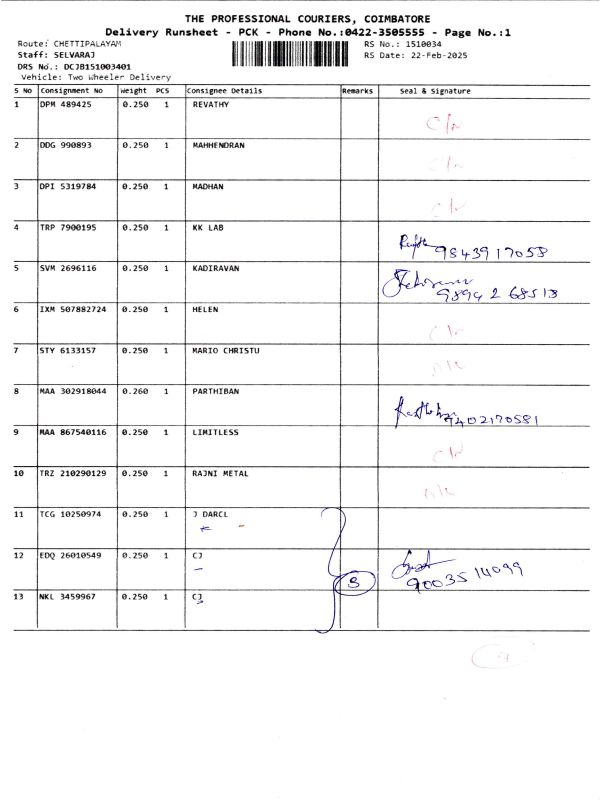 THE PROFESSIONAL COURIERS, COIMBATORE
Delivery Runsheet - PCK - Phone No.:0422-3505555 - Page No.:1
Route: CHETTIPALAYAM
RS No.: 1510034
Staff: SELVARAJ
RS Date: 22-Feb-2025
DRS No.: DCJB151003401
Vehicle: Two Wheeler Delivery
S No Consignment No Weight PCS Consignee Details Remarks Seal & Signature
1 DPM 489425 0.250 1 REVATHY
2 DDG 990893 0.250 1 MAHHENDRAN
3 DPI 5319784 0.250 1 MADHAN
4 TRP 7900195 0.250 1 KK LAB
9843917058
5 SVM 2696116 0.250 1 KADIRAVAN
98942 68513
6 IXM 507882724 0.250 1 HELEN
7 STY 6133157 0.250 1 MARIO CHRISTU
8 MAA 302918044 0.260 1 PARTHIBAN
9402170581
9 MAA 867540116 0.250 1 LIMITLESS
10 TRZ 210290129 0.250 1 RAJNI METAL
11 TCG 10250974 0.250 1 J DARCL
12 EDQ 26010549 0.250 1 CJ
9003514099
13 NKL 3459967 0.250 1 CJ